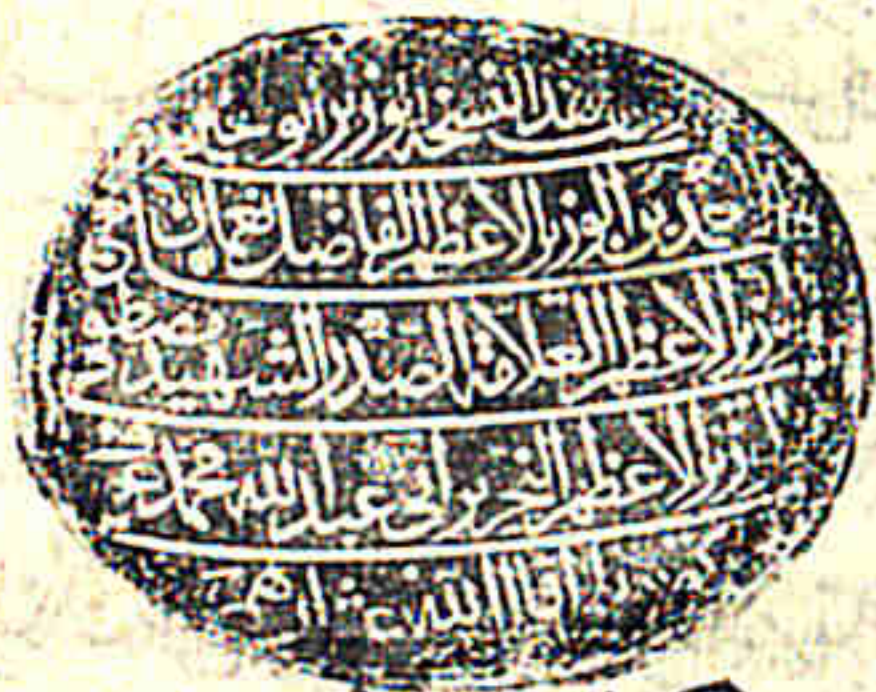 هذه النسخة الوزير ابو الخير
احمد بن الوزير الاعظم الفاضل نعمان بن
الوزير الاعظم العلامة الصدر الشهيد مصطفى بن
الوزير الاعظم النحرير ابي عبد الله محمد عرف
اقال الله عثارهم